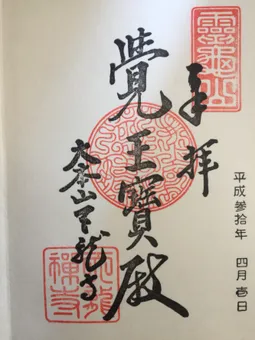 靈龜山
奉拝
平成参拾年 四月壱日
覺王寶殿
大本山天龍寺
天龍禪寺